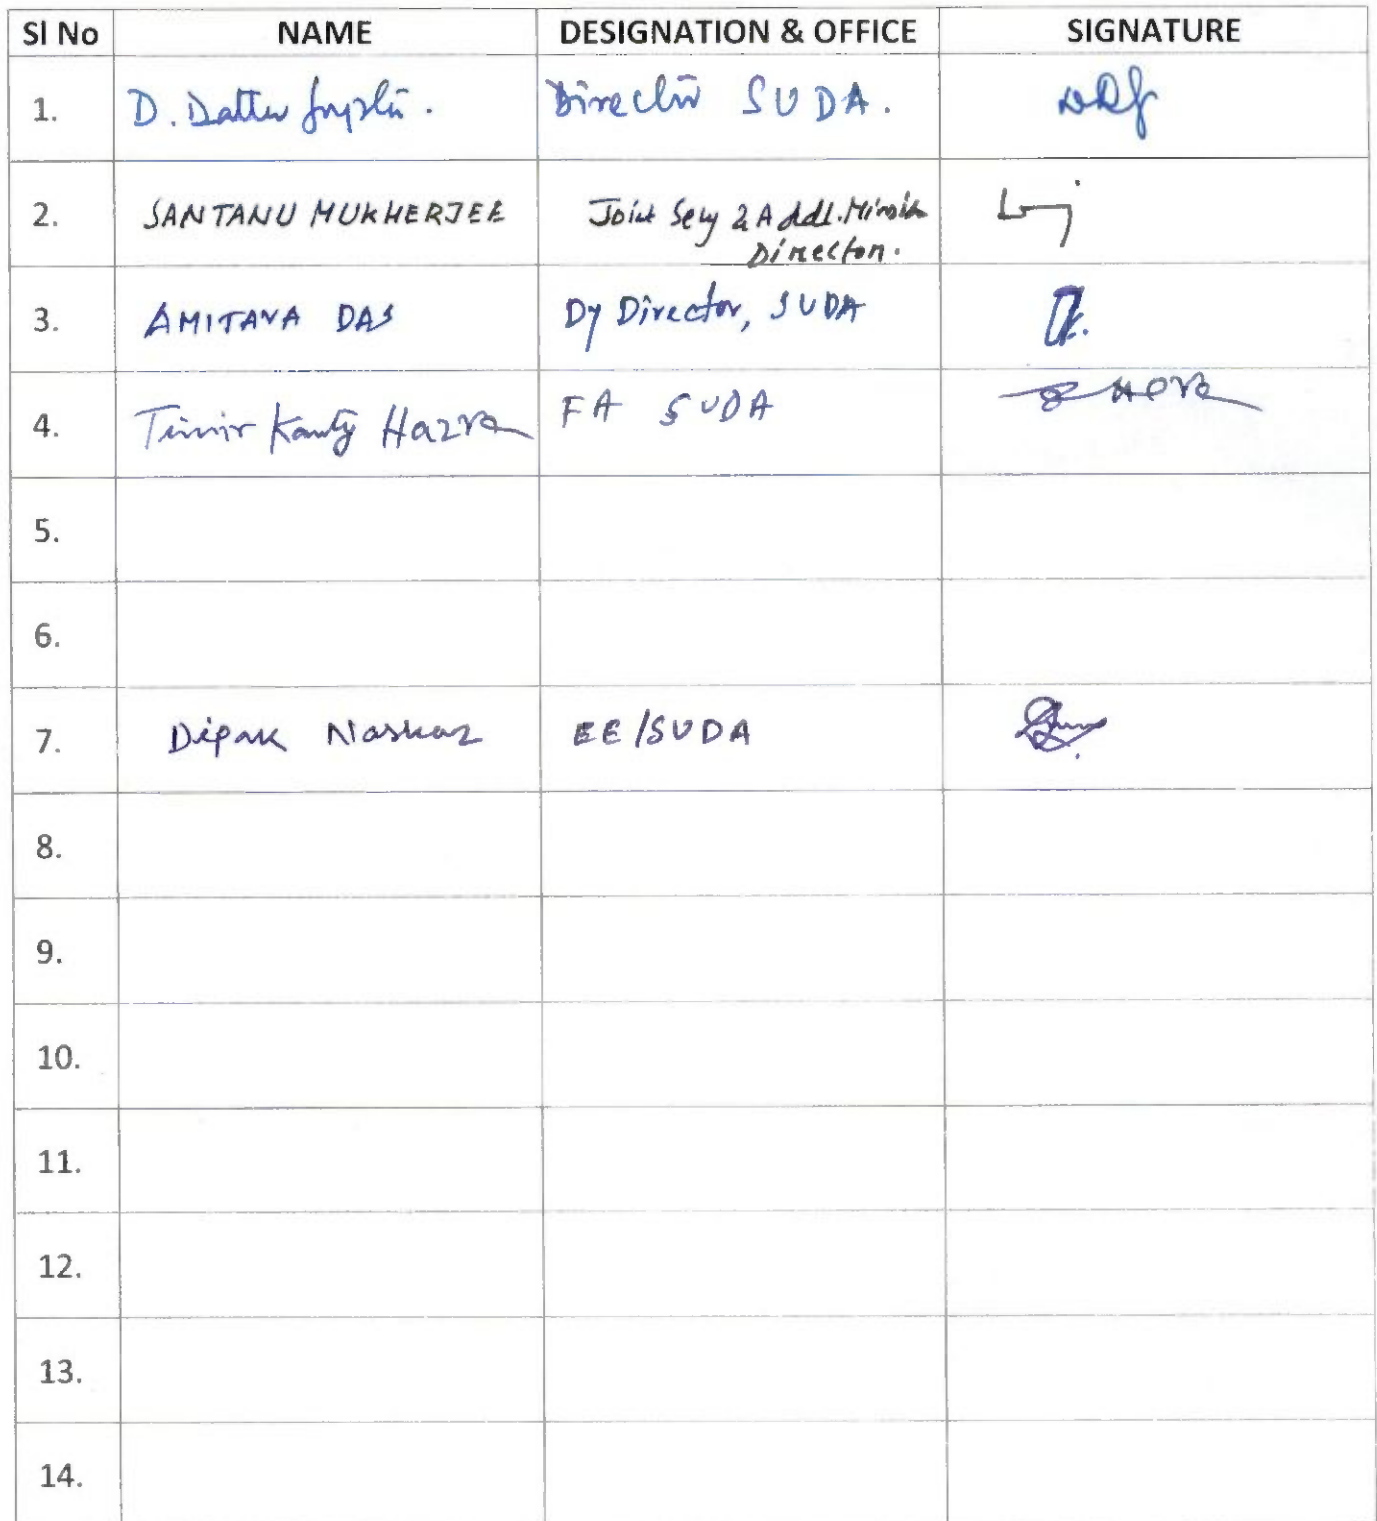 Sl No NAME DESIGNATION & OFFICE SIGNATURE
1. D. Datta Gupta. Director SUDA.
2. SANTANU MUKHERJEE Joint Secy & Addl. Mission
Director.
3. AMITAVA DAS Dy Director, SUDA
4. Timir Kanty Hazra FA SUDA
5.
6.
7. Dipak Naskar EE/SUDA
8.
9.
10.
11.
12.
13.
14.